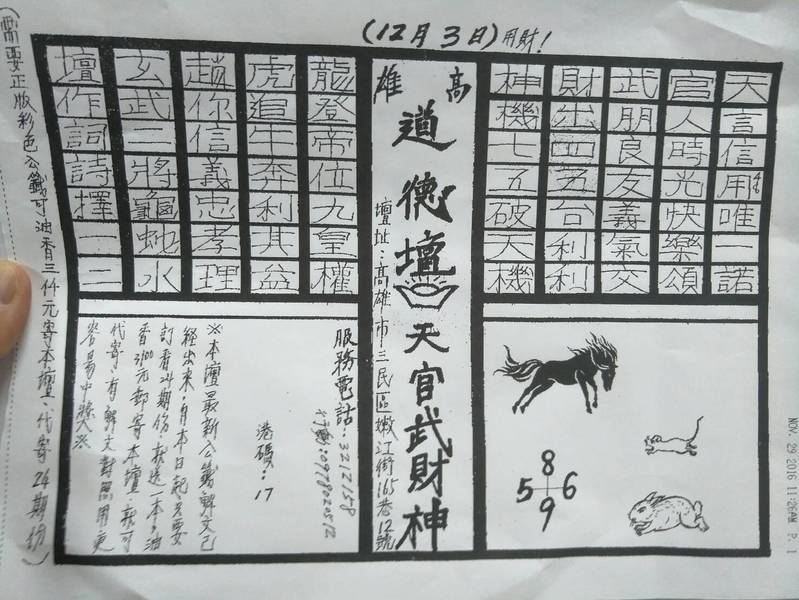 (12月3日)用財!
天言信用唯一諾
官人時光快樂頌
武朋良友義氣交
財出四五台利利
神機七五破天機
高雄
道德壇 天官武財神
壇址:高雄市三民區嫩江街165巷12號
龍登帝位九皇權
虎追牛奔利其益
趙你信義忠孝理
玄武二將龜蛇水
壇作詞詩擇一二
8
5 6
9
服務電話:3212558
港碼:17
※本壇最新公籤解文已
經出來,自本日起,只要
訂香24期份,就送一本,油
香3100元郵寄本壇,就可
代寄,有解文對照用更
容易中獎
(需要正版彩色公籤可油香三仟元寄本壇、代寄24期份)
NOV. 29 2016 11:26AM P. 1